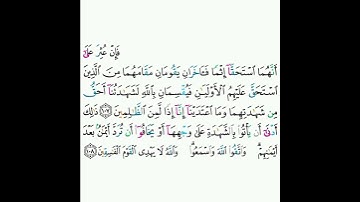 فَإِنْ عُثِرَ عَلَىٰ
أَنَّهُمَا ٱسْتَحَقَّآ إِثْمًا فَـَٔاخَرَانِ يَقُومَانِ مَقَامَهُمَا مِنَ ٱلَّذِينَ
ٱسْتَحَقَّ عَلَيْهِمُ ٱلْأَوْلَيَـٰنِ فَيُقْسِمَانِ بِٱللَّهِ لَشَهَـٰدَتُنَآ أَحَقُّ
مِن شَهَـٰدَتِهِمَا وَمَا ٱعْتَدَيْنَآ إِنَّآ إِذًا لَّمِنَ ٱلظَّـٰلِمِينَ ١٠٧ ذَٰلِكَ
أَدْنَىٰٓ أَن يَأْتُوا۟ بِٱلشَّهَـٰدَةِ عَلَىٰ وَجْهِهَآ أَوْ يَخَافُوٓا۟ أَن تُرَدَّ أَيْمَـٰنٌۢ بَعْدَ
أَيْمَـٰنِهِمْ ۗ وَٱتَّقُوا۟ ٱللَّهَ وَٱسْمَعُوا۟ ۗ وَٱللَّهُ لَا يَهْدِى ٱلْقَوْمَ ٱلْفَـٰسِقِينَ ١٠٨